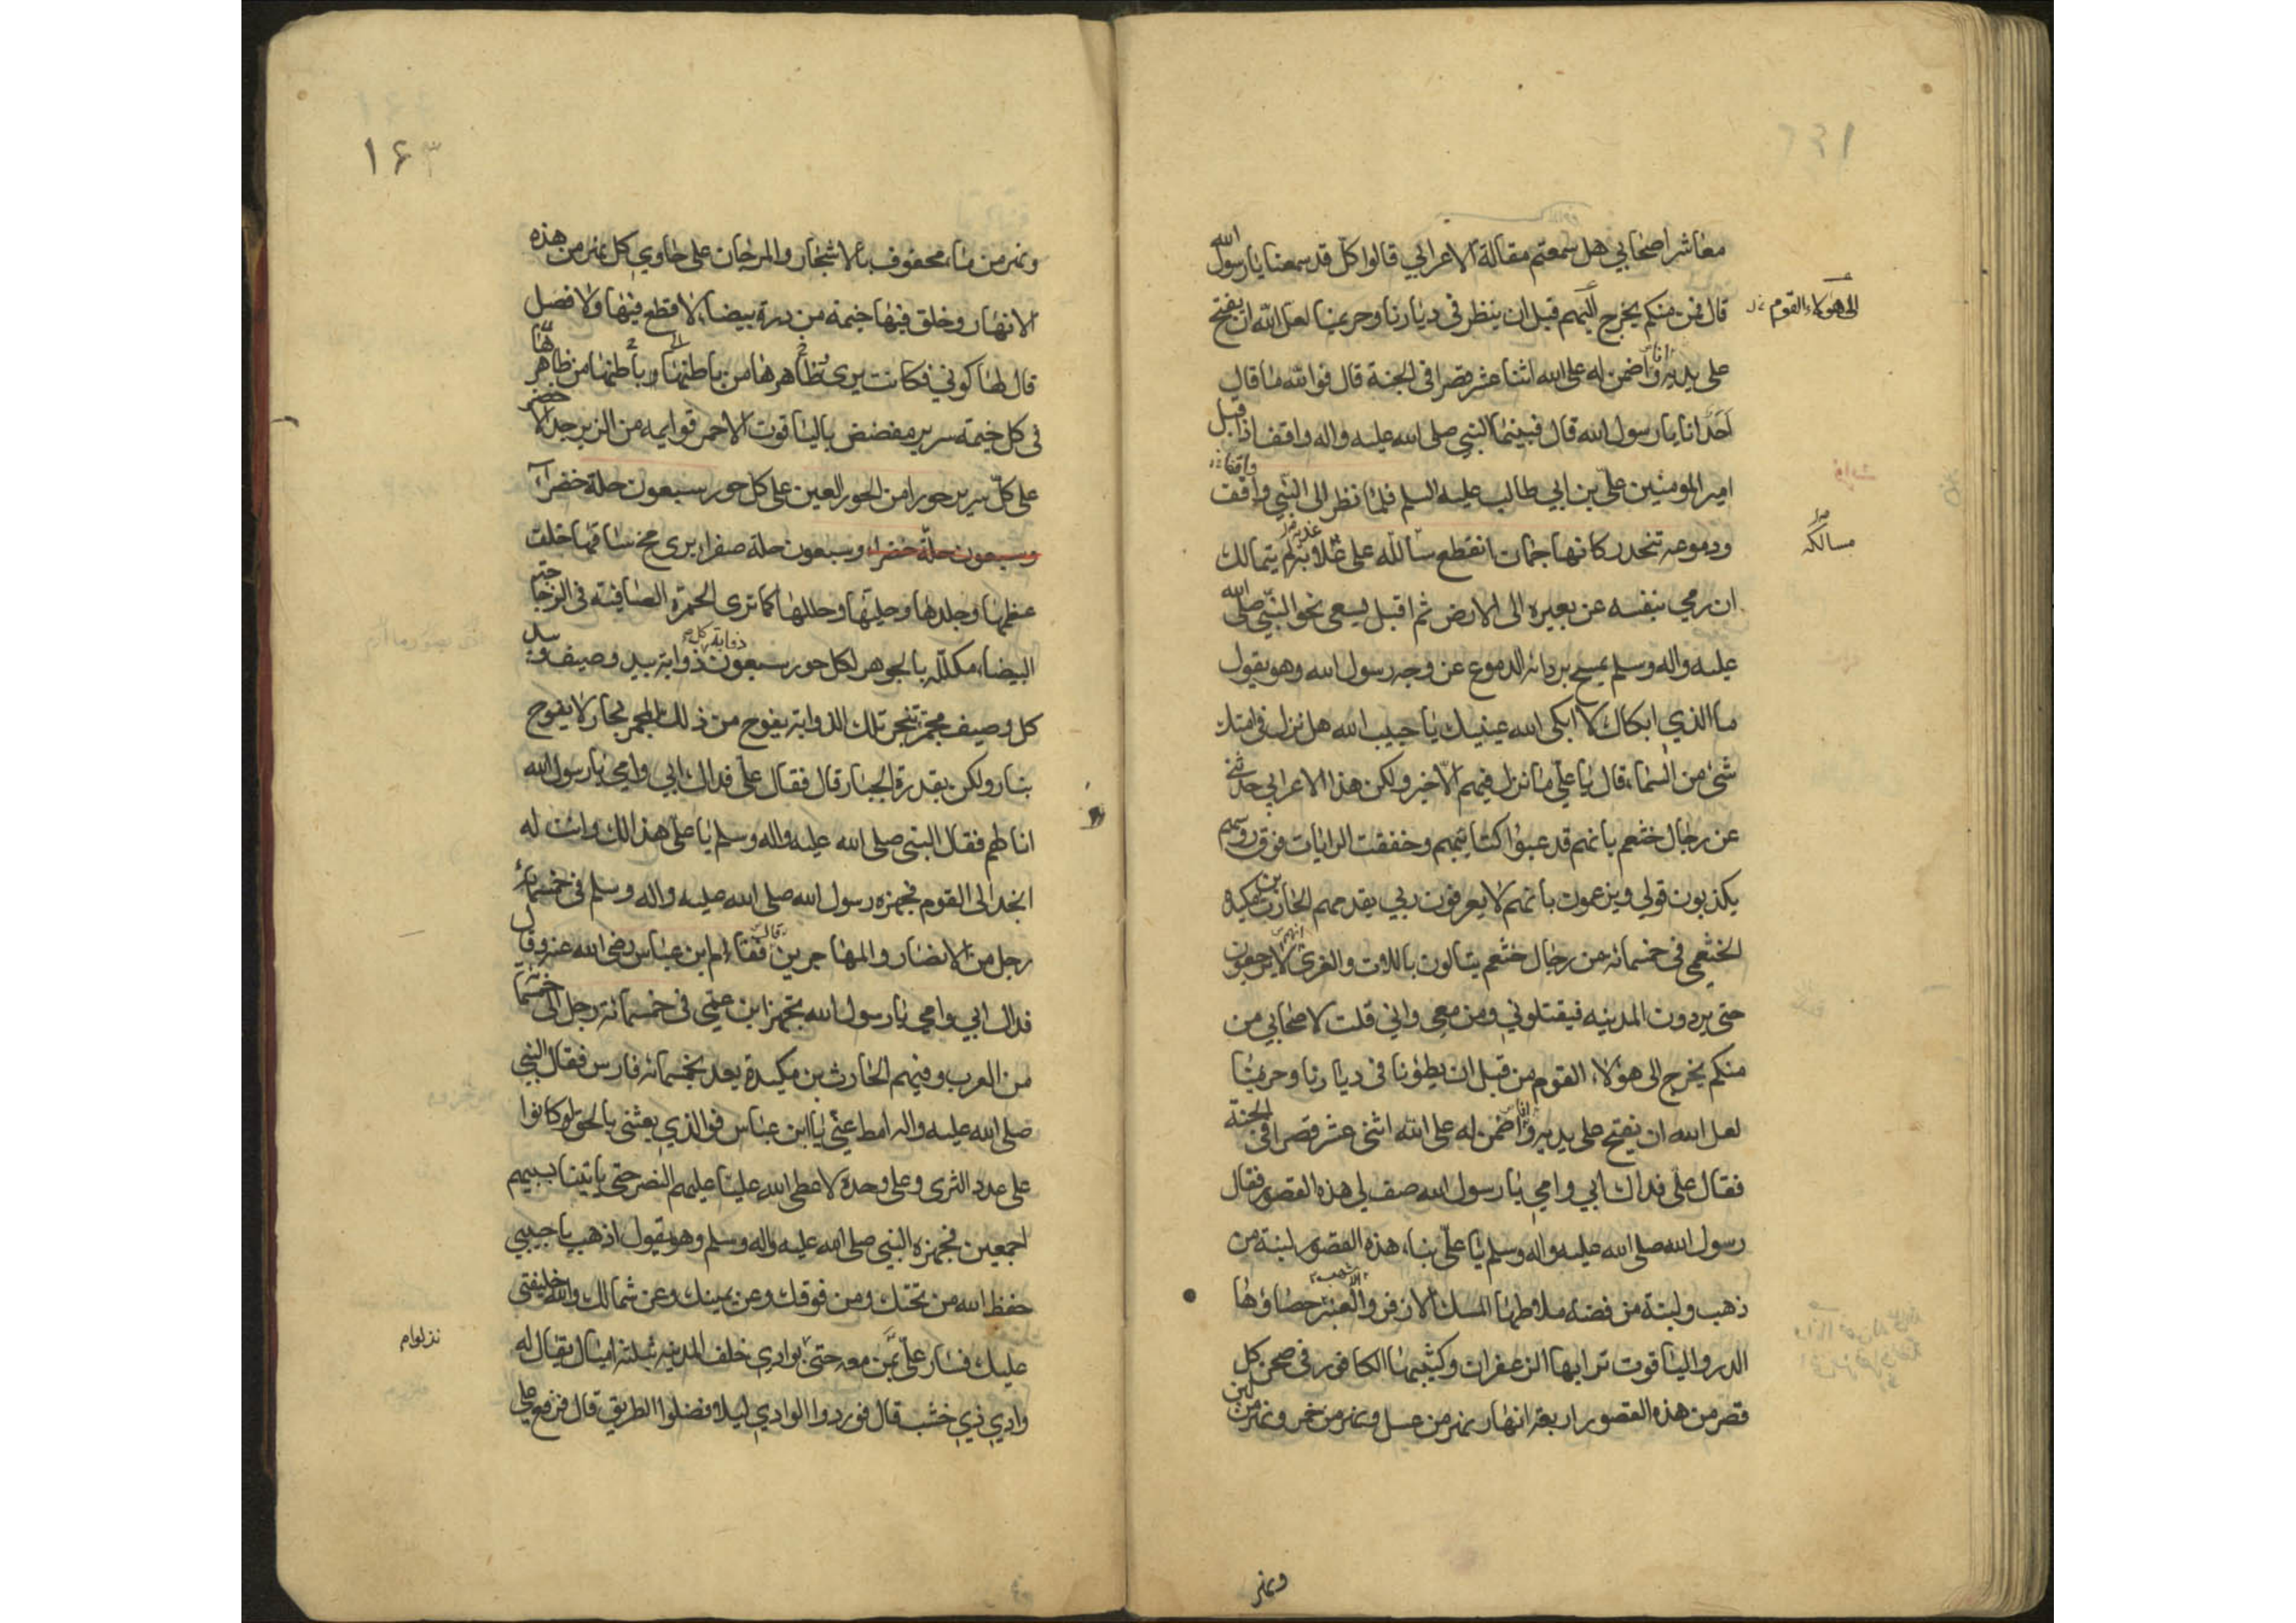 معاشر اصحابي هل سمعتم مقالة الاعرابي قالوا كل قد سمعنا يا رسول الله
قال فمن منكم يخرج اليهم قبل ان ينظر في ديارنا وحريمنا لعل الله ان يفتح
الى هؤلاء القوم
على يديه وانا اضمن له على الله اثنا عشر قصرا في الجنة قال فوالله ما قال
احد انا يا رسول الله قال فبينما النبي صلى الله عليه واله واقف اذ اقبل
امير المومنين علي بن ابي طالب عليه السلم فلما نظر الى النبي واقف
ودموعه تنحدر كانها جمان انقطع سلكه على لم يتمالك
ان رمى بنفسه عن بعيره الى الارض ثم اقبل يسعى نحو النبي صلى الله
عليه واله وسلم يمسح بردائه الدموع عن وجه رسول الله وهو يقول
ما الذي ابكاك لا ابكى الله عينيك يا حبيب الله هل نزل في امتك
شئ من السماء قال يا علي ما نزل فيهم الا خير ولكن هذا الاعرابي حدثني
عن رجال خثعم بانهم قد عبوا كتايبهم وخفقت الرايات فوق روسهم
يكذبون قولي ويزعمون بانهم لا يعرفون ربي يقدمهم الحارث بن مكيدة
الخثعمي في خمسمائه من رجال خثعم يتالون باللات والعزى لا يرجعون
حتى يردون المدينه فيقتلوني ومن معي واني قلت لاصحابي من
منكم يخرج الى هؤلاء القوم من قبل ان يطؤنا في ديارنا وحريمنا
لعل الله ان يفتح على يديه وانا اضمن له على الله اثنى عشر قصرا في الجنة
فقال علي فداك ابي وامي يا رسول الله صف لي هذه القصور فقال
رسول الله صلى الله عليه واله وسلم يا علي بناء هذه القصور لبنة من
ذهب ولبنة من فضه ملاطها المسك الاذفر والعنبر حصاؤها
الدر والياقوت ترابها الزعفران وكثيبها الكافور في صحن كل
قصر من هذه القصور اربعة انهار نهر من عسل ونهر من خمر ونهر من لبن
ونهر
۱۶۳
ونهر من ماء محفوف بالاشجار والمرجان على حاوي كل نهر من هذه
الانهار وخلق فيها خيمة من درة بيضاء لا قطع فيها ولا فصل
قال لها كوني فكانت يرى ظاهرها من باطنها وباطنها من ظاهرها
في كل خيمة سرير مفضض بالياقوت الاحمر قوايمه من الزبرجد الاخضر
على كل سرير حورا من الحور العين على كل حور سبعون حلة خضراء
وسبعون حلة خضراء وسبعون حلة صفراء يرى مخ ساقها خلف
عظمها وجلدها وحليتها وحللها كما ترى الخمرة الصافية في الزجاجة
البيضاء مكلله بالجوهر لكل حور سبعون ذوابة بيد وصيف وبيد
كل وصيف مجمر تبخر تلك الذوابة يفوح من ذلك المجمر بخار لا يفوح
بنار ولكن بقدرة الجبار قال فقال علي فداك ابي وامي يا رسول الله
انا لهم فقال النبي صلى الله عليه واله وسلم يا علي هذا لك وانت له
انجد الى القوم فجهزه رسول الله صلى الله عليه واله وسلم في خمسمائة
رجل من الانصار والمهاجرين فقام ابن عباس رضي الله عنه وقال
فداك ابي وامي يا رسول الله تجهز ابن عمي في خمسمائة رجل الى خمسمائة
من العرب وفيهم الحارث بن مكيدة يعد بخمسمائه فارس فقال النبي
صلى الله عليه واله امط عني يا ابن عباس فوالذي بعثني بالحق لو كانوا
على عدد الثرى وعلي وحده لاعطى الله عليا عليهم النصر حتى ياتينا بسبيهم
اجمعين فجهزه النبي صلى الله عليه واله وسلم وهو يقول اذهب يا حبيبي
حفظ الله من تحتك ومن فوقك وعن يمينك وعن شمالك والله خليفتي
عليك فسار علي بمن معه حتى بوادي خلف المدينه بثلثة اميال يقال له
وادي ذي خشب قال فوردوا الوادي ليلا فضلوا الطريق قال فرفع علي